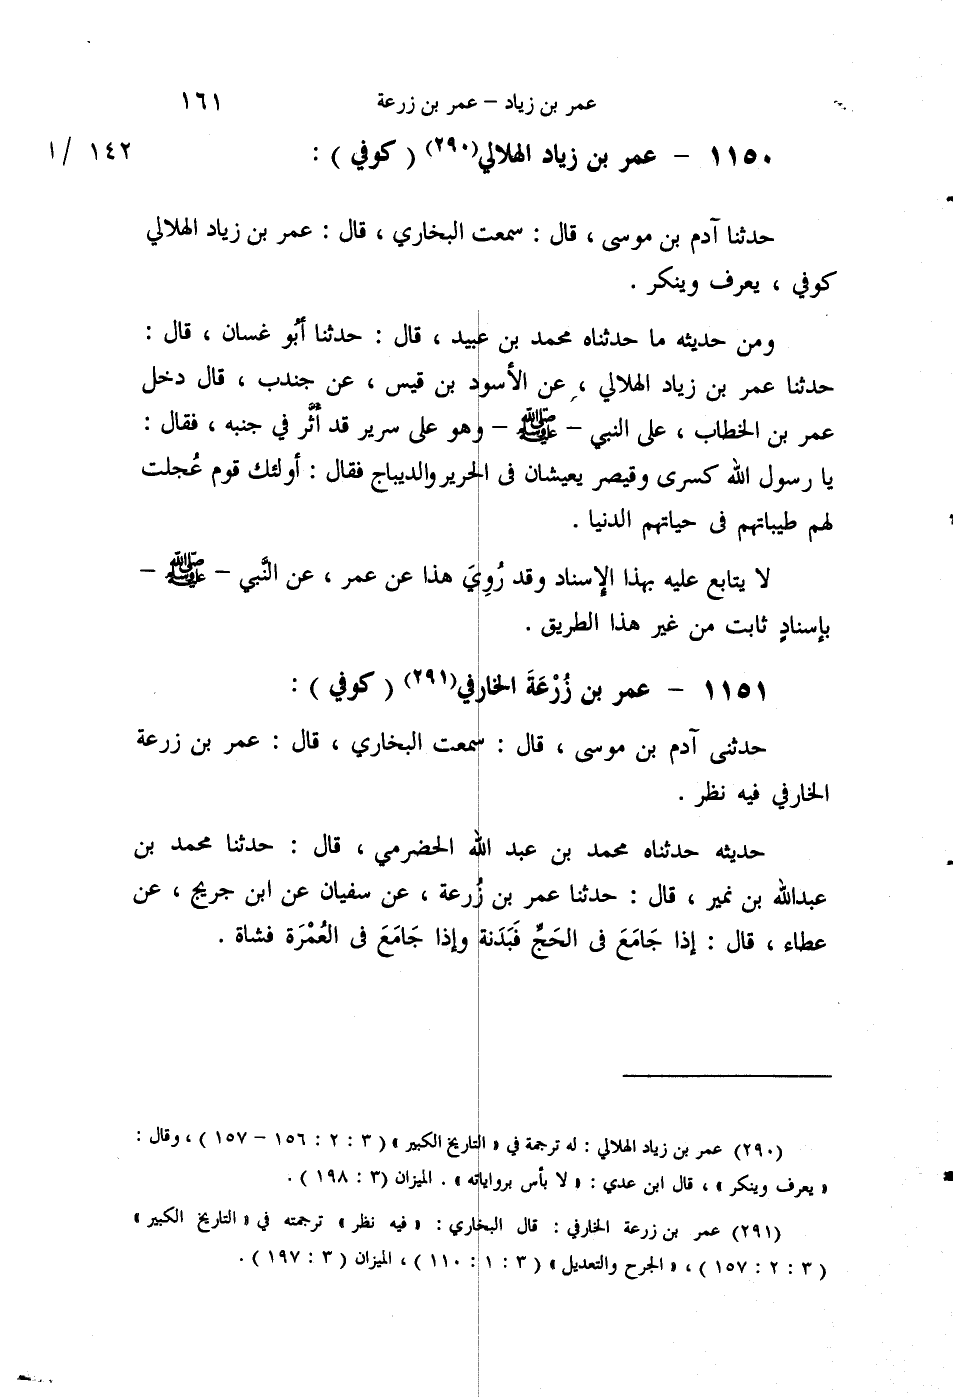 عمر بن زياد - عمر بن زرعة ١٦١
١١٥٠ - عمر بن زياد الهلالي(٢٩٠) ( كوفي ) : ١٤٢ /١
حدثنا آدم بن موسى ، قال : سمعت البخاري ، قال : عمر بن زياد الهلالي
كوفي ، يعرف وينكر .
ومن حديثه ما حدثناه محمد بن عبيد ، قال : حدثنا أبُو غسان ، قال :
حدثنا عمر بن زياد الهلالي ، عن الأسود بن قيس ، عن جندب ، قال دخل
عمر بن الخطاب ، على النبي - ﷺ - وهو على سرير قد أُثَّر في جنبه ، فقال :
يا رسول الله كسرى وقيصر يعيشان فى الحرير والديباج فقال : أولئك قوم عُجلت
لهم طيباتهم فى حياتهم الدنيا .
لا يتابع عليه بهذا الإسناد وقد رُوِيَ هذا عن عمر ، عن النَّبي - ﷺ -
بإسنادٍ ثابت من غير هذا الطريق .
١١٥١ - عمر بن زُرْعَةَ الخارفي(٢٩١) ( كوفي ) :
حدثنى آدم بن موسى ، قال : سمعت البخاري ، قال : عمر بن زرعة
الخارفي فيه نظر .
حديثه حدثناه محمد بن عبد الله الحضرمي ، قال : حدثنا محمد بن
عبدالله بن نمير ، قال : حدثنا عمر بن زُرعة ، عن سفيان عن ابن جريج ، عن
عطاء ، قال : إذا جَامَعَ فى الحَجِّ فَبَدنة وإذا جَامَعَ فى العُمْرَة فشاة .
(٢٩٠) عمر بن زياد الهلالي : له ترجمة في « التاريخ الكبير » ( ٣ : ٢ : ١٥٦ - ١٥٧ ) ، وقال :
« يعرف وينكر » ، قال ابن عدي : « لا بأس برواياته » . الميزان (٣ : ١٩٨ ) .
(٢٩١) عمر بن زرعة الخارفي : قال البخاري : « فيه نظر » ترجمته في « التاريخ الكبير »
( ٣ : ٢ : ١٥٧ ) ، « الجرح والتعديل » ( ٣ : ١ : ١١٠ ) ، الميزان ( ٣ : ١٩٧ ) .